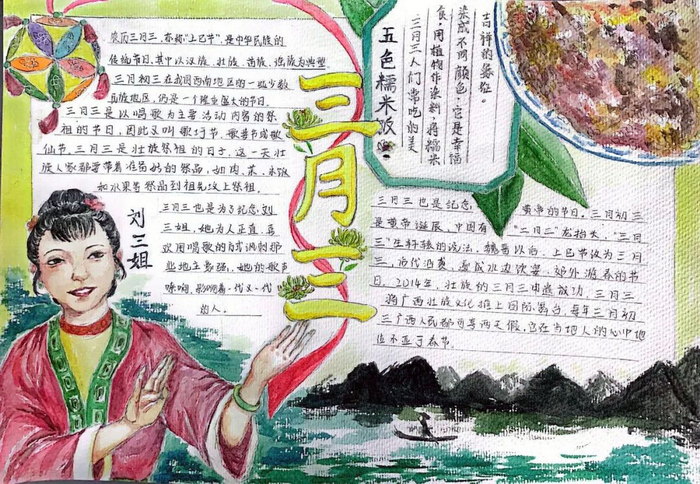 农历三月三,亦称"上巳节",是中华民族的
传统节日,其中以汉族、壮族、苗族、瑶族为典型
三月初三在我国西南地区的一些少数
民族地区,仍是一个隆重盛大的节日。
三月三是以唱歌为主要活动内容的祭
祖的节日,因此又叫歌圩节、歌婆节或歌
仙节。三月三是壮族祭祖的日子,这一天壮
族人家都要带着准备好的祭品,如肉、菜、米饭
和水果等祭品到祖先坟上祭祖。
三月三
刘三姐
三月三也是为了纪念刘
三姐,她为人正直,喜
欢用唱歌的方式讽刺那
些地主豪强,她的歌声
嘹亮,影响着一代又一代
的人。
五色糯米饭
三月三人们常吃的美
食,用植物作染料,将糯米
染成不同颜色,它是幸福
吉祥的象征。
三月三也是纪念 黄帝的节日,三月初三
是黄帝诞辰,中国有 "二月二"龙抬头,"三月
三"生轩辕的说法。魏晋以后,上巳节改为三月
三,后代沿袭,遂成水边饮宴、郊外游春的节
日。2014年,壮族的三月三申遗成功,三月三
将广西壮族文化推上国际舞台,每年三月初
三广西人民都可享两天假,它在当地人的心中地
位不亚于春节